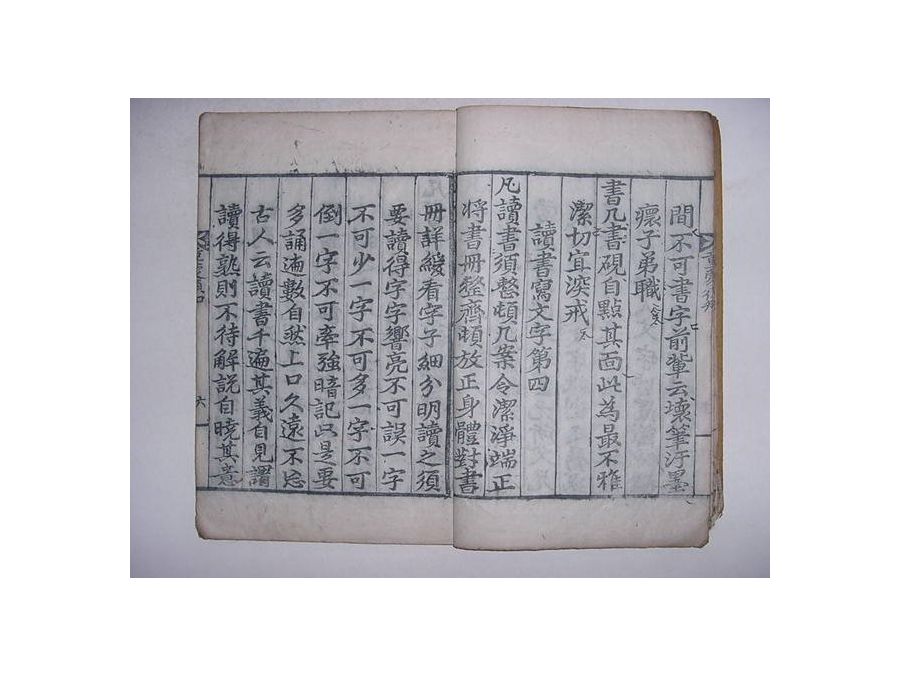 間不可書字前輩云壞筆汙墨
瘝子弟職
書几書硯自黥其面此為最不雅
潔切宜深戒
讀書寫文字第四
凡讀書須整頓几案令潔淨端正
將書冊整齊頓放正身體對書
冊詳緩看字子細分明讀之須
要讀得字字響亮不可誤一字
不可少一字不可多一字不可
倒一字不可牽強暗記只是要
多誦遍數自然上口久遠不忘
古人云讀書千遍其義自見謂
讀得熟則不待解說自曉其意
六